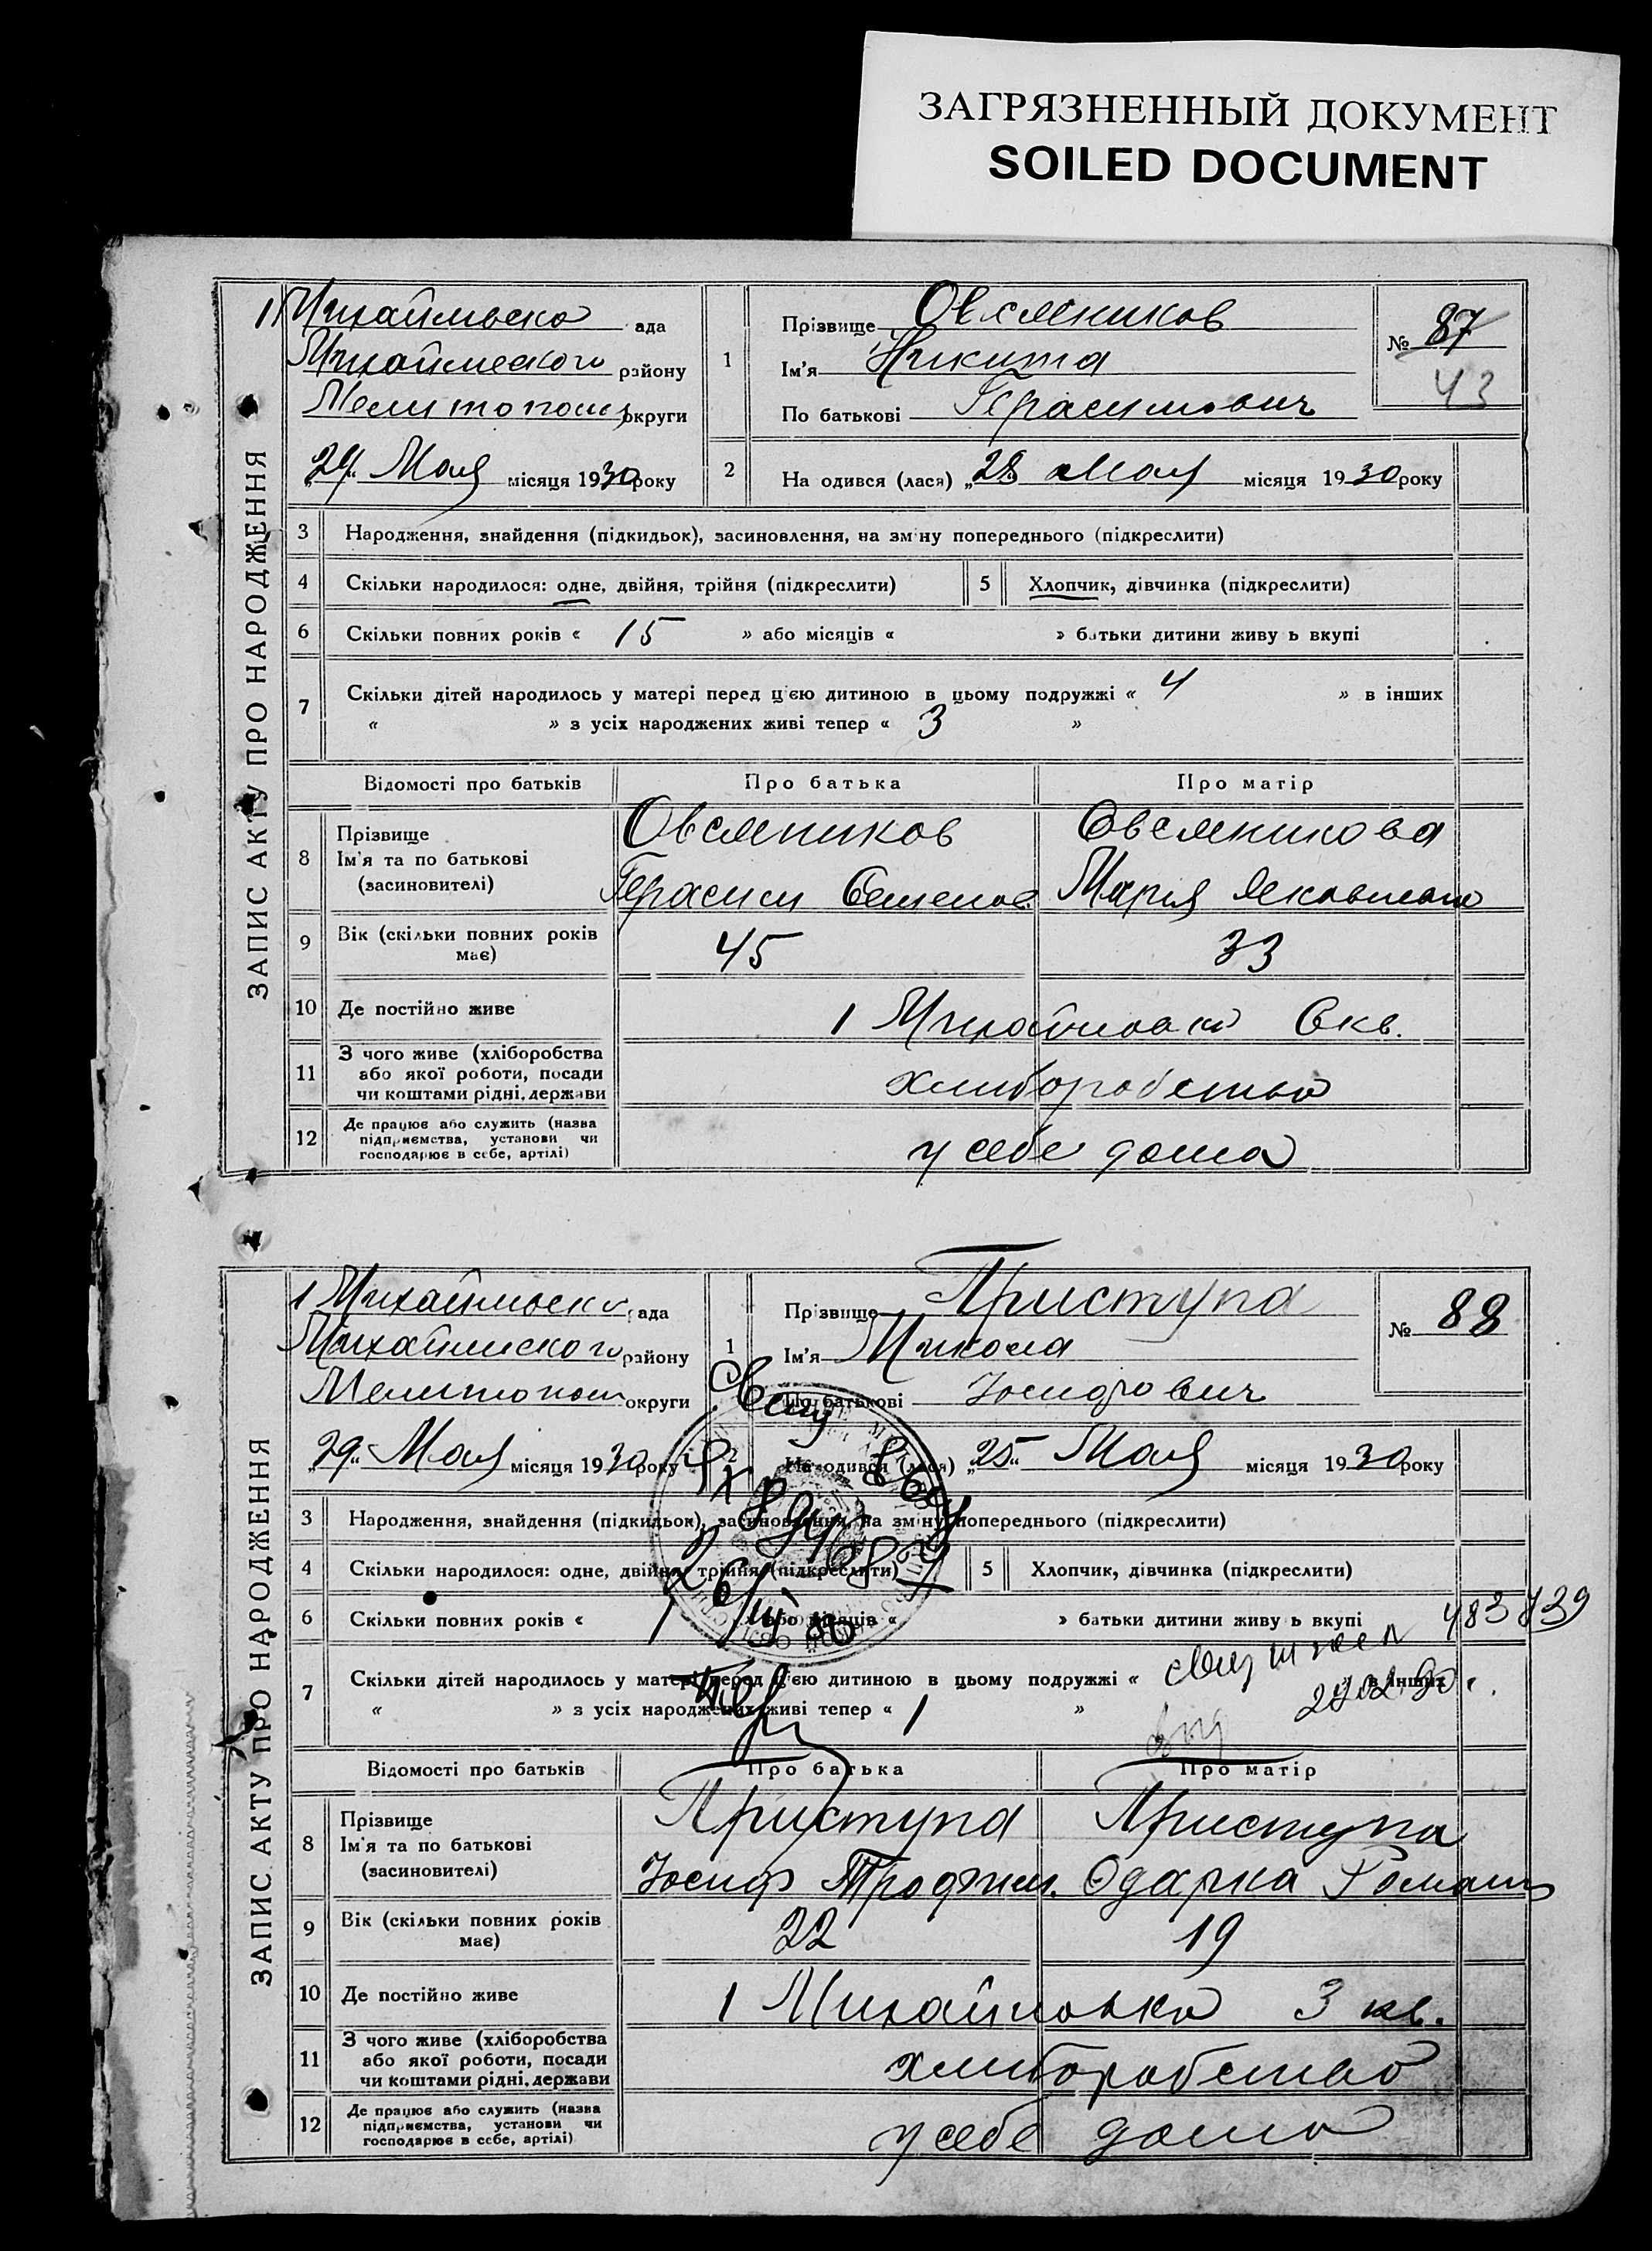 ЗАГРЯЗНЕННЫЙ ДОКУМЕНТ
SOILED DOCUMENT
ЗАПИС АКТУ ПРО НАРОДЖЕННЯ
ада
району
округи
29 Мая місяця 1930 року
1
Прізвище Овсяников
Ім'я Никита
По батькові Герасимович
№ 87
43
2
На одився (лася) „28 Мая місяця 1930 року
3 Народження, знайдення (підкидьок), засиновлення, на зміну попереднього (підкреслити)
4 Скільки народилося: одне, двійня, трійня (підкреслити) 5 Хлопчик, дівчинка (підкреслити)
6 Скільки повних років « 15 » або місяців « » батьки дитини живу ь вкупі
7 Скільки дітей народилось у матері перед цією дитиною в цьому подружжі « 4 » в інших
« » з усіх народжених живі тепер « 3 »
Відомості про батьків Про батька Про матір
8 Прізвище
Ім'я та по батькові
(засиновителі)
Овсяников Овсяникова
Герасим Семенов. Мария
9 Вік (скільки повних років має) 45 33
10 Де постійно живе 1 Михайловка
11 З чого живе (хліборобства
або якої роботи, посади
чи коштами рідні, держави
хлиборобство
12 Де працює або служить (назва
підприємства, установи чи
господарює в себе, артілі)
у себе дома
ЗАПИС АКТУ ПРО НАРОДЖЕННЯ
ада
району
округи
„29„ Мая місяця 1930 року
1
Прізвище Приступа
Ім'я Микола
По батькові Иосифович
№ 88
2
На одився (лася) „25„ Мая місяця 1930 року
3 Народження, знайдення (підкидьок), засиновлення, на зміну попереднього (підкреслити)
4 Скільки народилося: одне, двійня, трійня (підкреслити) 5 Хлопчик, дівчинка (підкреслити)
6 Скільки повних років « 1 » або місяців « » батьки дитини живу ь вкупі
483739
7 Скільки дітей народилось у матері перед цією дитиною в цьому подружжі « » в інших
« » з усіх народжених живі тепер « 1 »
Відомості про батьків Про батька Про матір
8 Прізвище
Ім'я та по батькові
(засиновителі)
Приступа Приступа
Иосиф Трофим. Одарка Роман
9 Вік (скільки повних років має) 22 19
10 Де постійно живе 1 Михайловка 3 кв.
11 З чого живе (хліборобства
або якої роботи, посади
чи коштами рідні, держави
хлиборобство
12 Де працює або служить (назва
підприємства, установи чи
господарює в себе, артілі)
у себе дома